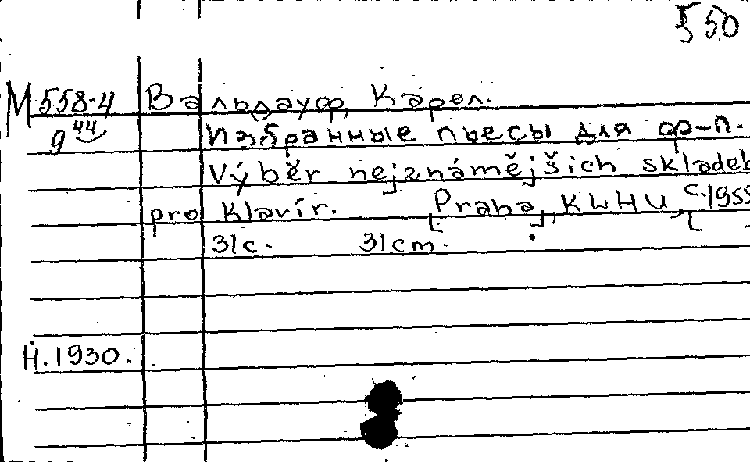 550
М 558-4 Вальдауф, Карел.
g 44 Избранные пьесы для ф-п.
Výběr nejznámějších skladeb
pro klavír. [Praha], KLHU, [c. 1955
31 с. 31 cm.
Н. 1930.